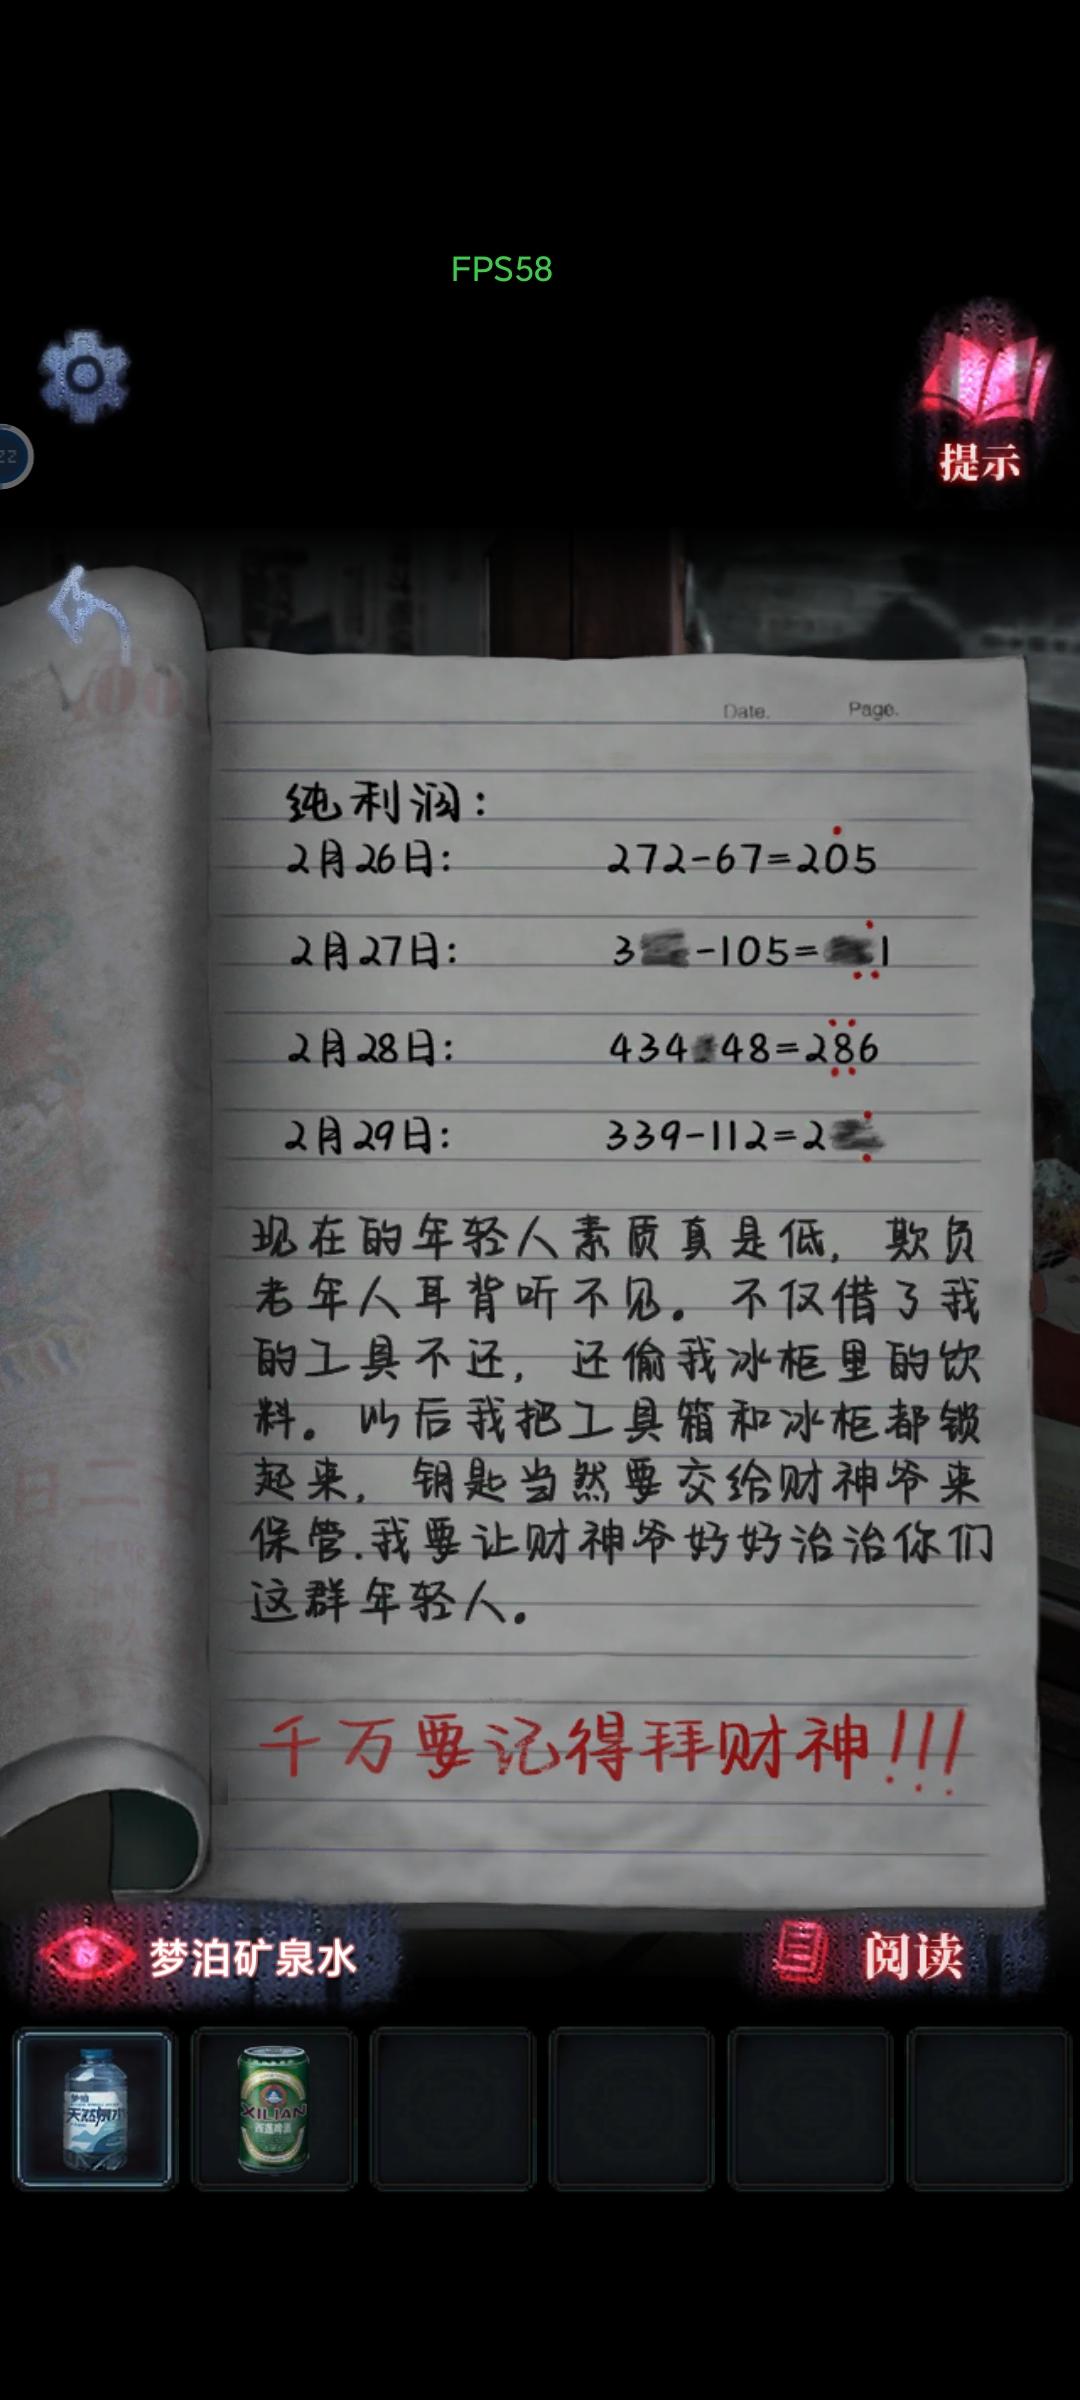 FPS58
提示
zz
Date. Page.
纯利润：
2月26日： 272-67=205
2月27日： 3 -105= 1
2月28日： 434 48=286
2月29日： 339-112=2
现在的年轻人素质真是低，欺负
老年人耳背听不见。不仅借了我
的工具不还，还偷我冰柜里的饮
料。以后我把工具箱和冰柜都锁
起来，钥匙当然要交给财神爷来
保管.我要让财神爷好好治治你们
这群年轻人。
千万要记得拜财神!!!
梦泊矿泉水
阅读
XILIAN